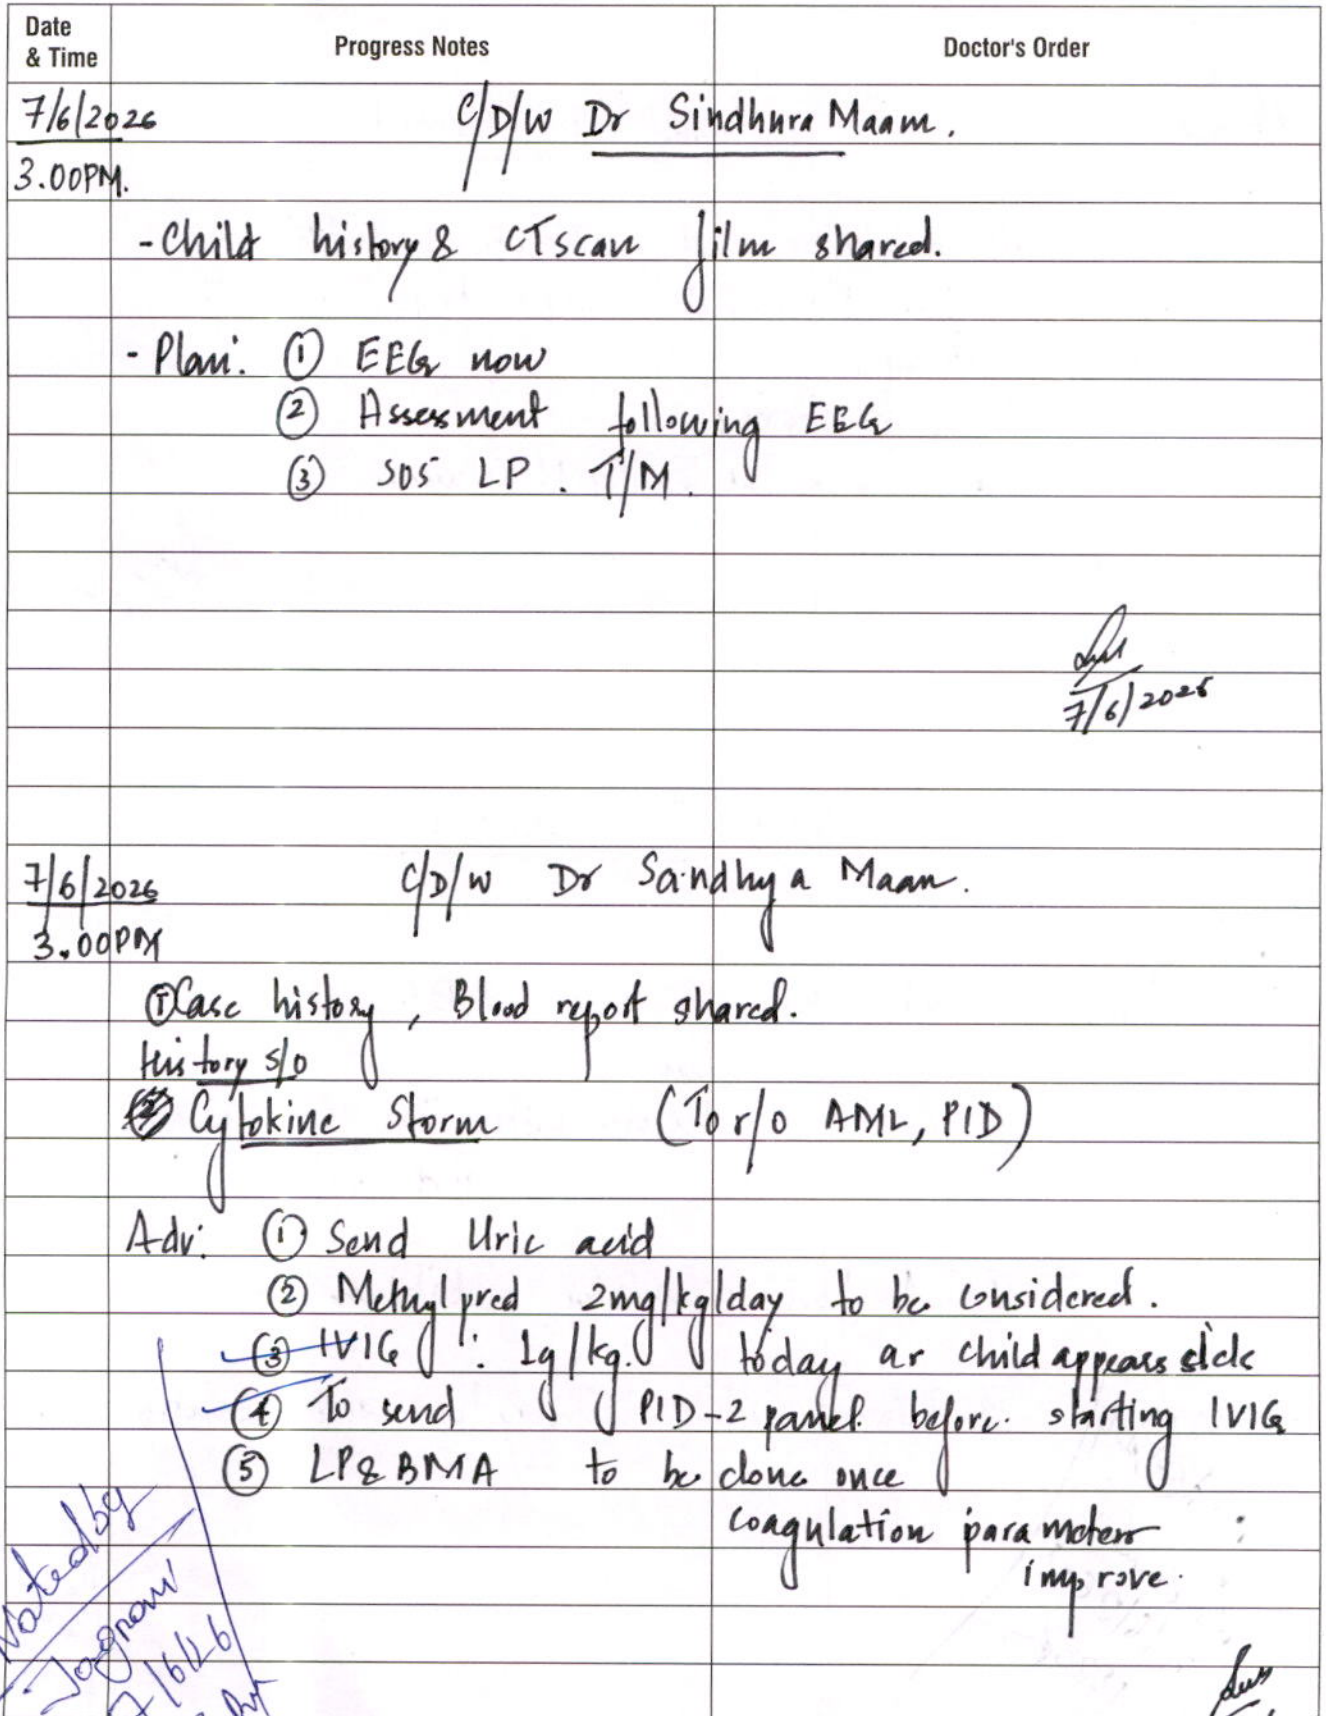 Date & Time
Progress Notes
Doctor's Order
7/6/2026
C/D/W Dr Sindhura Maam.
3.00PM.
- Child history & CT scan film shared.
- Plan: ① EEG now
② Assessment following EEG
③ SOS LP. T/M.
7/6/2026
7/6/2026
C/D/W Dr Sandhya Maam.
3.00PM
① Case history, Blood report shared.
History s/o
Cytokine Storm (To r/o AML, PID)
Adv: ① Send Uric acid
② Methylpred 2mg/kg/day to be considered.
③ IVIG : 1g/kg. today as child appears sick
④ To send PID-2 panel before starting IVIG
⑤ LP & BMA to be done once
coagulation parameters
improve.
Noted by
7/6/26